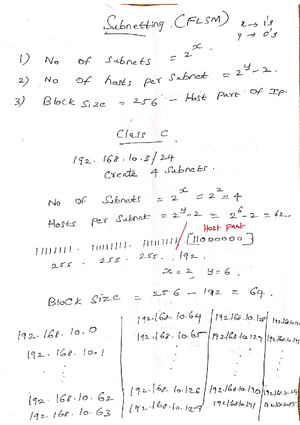 Subnetting (FLSM) x → 1's
y → 0's
1) No of Subnets = 2^x.
2) No of hosts per Subnet = 2^y - 2.
3) Block Size = 256 - Host Part of Ip.
Class C
192.168.10.3/24
Create 4 Subnets.
No of Subnets = 2^x = 2^2 = 4
Hosts per Subnet = 2^y - 2 = 2^6 - 2 = 62.
Host part
11111111. 11111111. 11111111. [11000000]
255. 255. 255. 192.
x = 2 y = 6.
Block Size = 256 - 192 = 64.
192.168.10.0 192.168.10.64 192.168.10.128
192.168.10.1 192.168.10.65 192.168.10.129
192.168.10.62 192.168.10.126 192.168.10.190
192.168.10.63 192.168.10.127 192.168.10.191